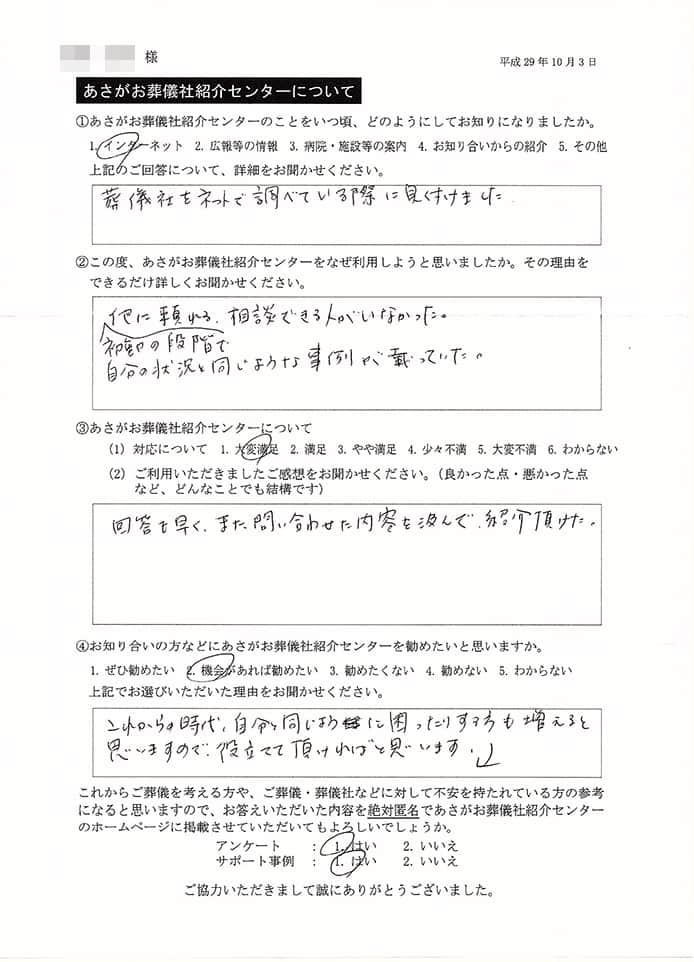 様
平成29年10月3日
あさがお葬儀社紹介センターについて
①あさがお葬儀社紹介センターのことをいつ頃、どのようにしてお知りになりましたか。
1. インターネット 2. 広報等の情報 3. 病院・施設等の案内 4. お知り合いからの紹介 5. その他
上記のご回答について、詳細をお聞かせください。
葬儀社をネットで調べている際に見くつけました
②この度、あさがお葬儀社紹介センターをなぜ利用しようと思いましたか。その理由を
できるだけ詳しくお聞かせください。
他に頼れる、相談できる人がいなかった。
初動の段階で
自分の状況と同じような事例が載っていた。
③あさがお葬儀社紹介センターについて
(1) 対応について 1. 大変満足 2. 満足 3. やや満足 4. 少々不満 5. 大変不満 6. わからない
(2) ご利用いただきましたご感想をお聞かせください。(良かった点・悪かった点
など、どんなことでも結構です)
回答も早く、また問い合わせた内容を汲んで、紹介頂けた。
④お知り合いの方などにあさがお葬儀社紹介センターを勧めたいと思いますか。
1. ぜひ勧めたい 2. 機会があれば勧めたい 3. 勧めたくない 4. 勧めない 5. わからない
上記でお選びいただいた理由をお聞かせください。
これからの時代、自分と同じように困ったりする方も増えると
思いますので、役立てて頂ければと思います。
これからご葬儀を考える方や、ご葬儀・葬儀社などに対して不安を持たれている方の参考
になると思いますので、お答えいただいた内容を絶対匿名であさがお葬儀社紹介センター
のホームページに掲載させていただいてもよろしいでしょうか。
アンケート : 1. はい 2. いいえ
サポート事例 : 1. はい 2. いいえ
ご協力いただきまして誠にありがとうございました。